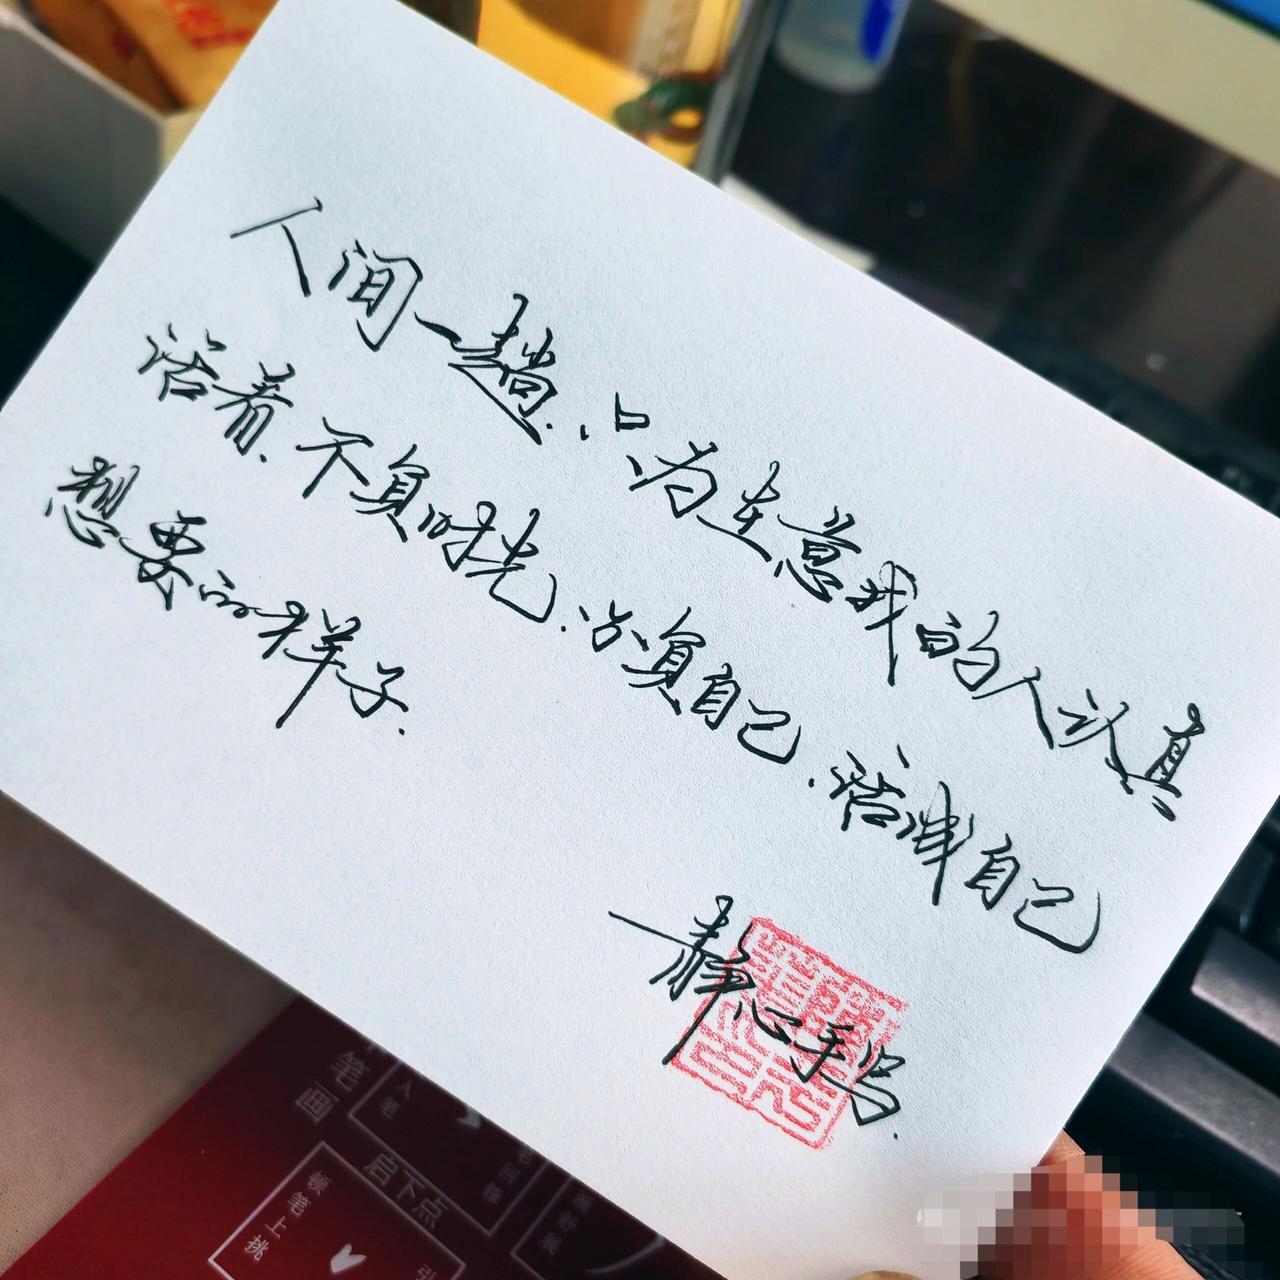 人间一趟.只为在意我的人认真
活着.不负时光.不负自己.活成自己
想要的样子.
静心手写.
笔画
入笔
启下点
顿笔上挑